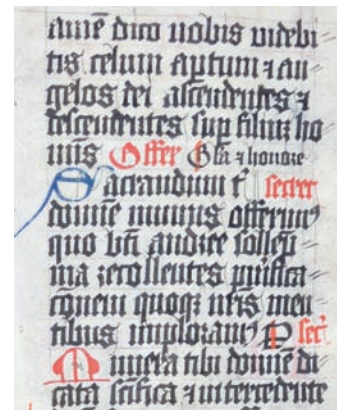 amē dico uobis uidebi-
tis celum aptum ⁊ an-
gelos dei ascendentes ⁊
descendentes sup filiuꝫ ho
mīs Offer Glā ⁊ honore
Sacrandum t' secret
domīe munus offerimꝰ
quo bt̄i andree sollēp-
nia recollentes pu'ifica-
cōnem quoqꝫ nr̄is men-
tibus imploramꝰ P secr̄
Munera tibi domīe di-
cata sc̄ifica ⁊ intercedente